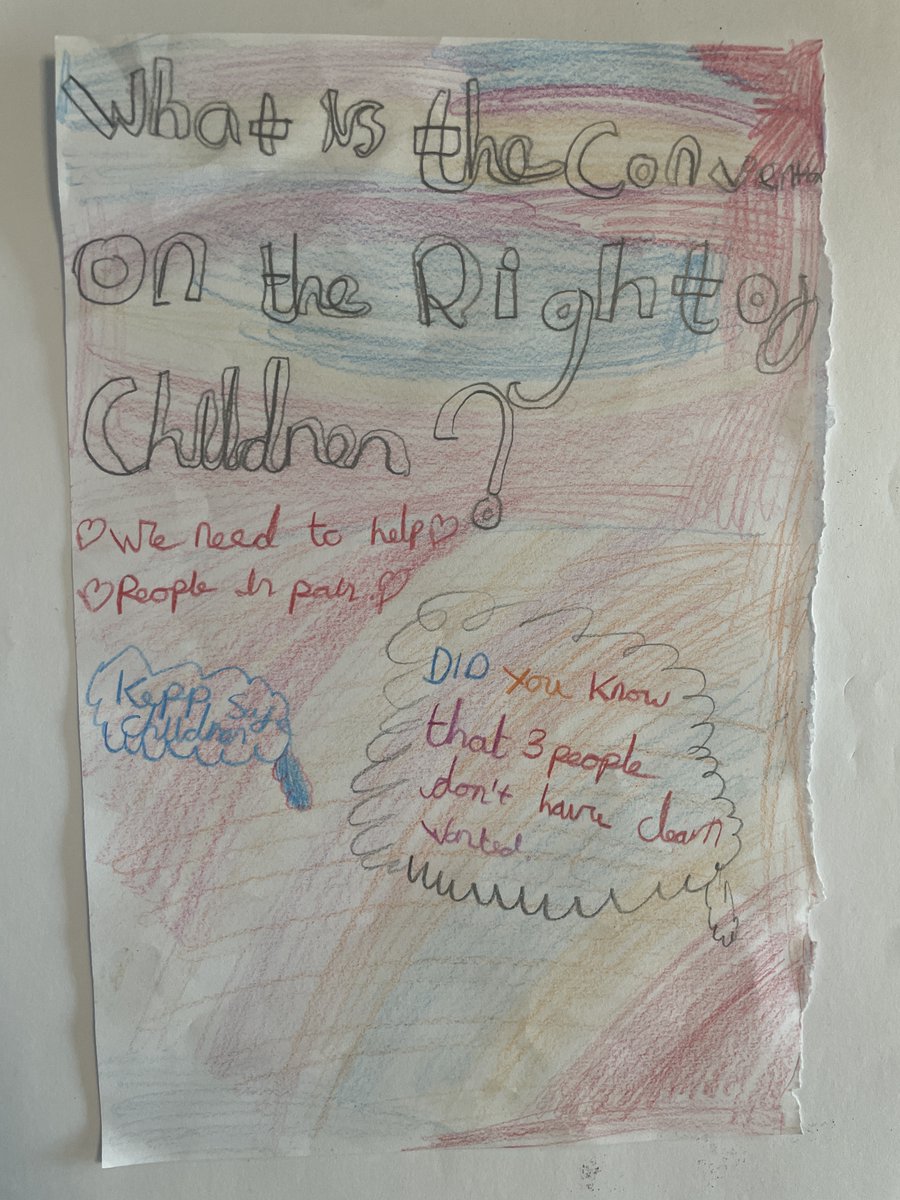 What is the Convention
on the Right of
Children ?
We need to help
People in pain.
Kepp Saf
Children
DID you know
that 3 people
don't have clean
Wanted.